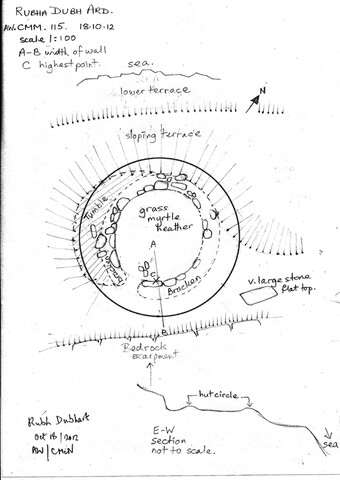 RUBHA DUBH ARD.
AW. CMM. 115. 18-10-12
scale 1:100
A-B width of wall
C highest point.
sea.
lower terrace
N
sloping terrace
Tumble
grass
myrtle
heather
A
C
Bracken
Bracken
B
v. large stone
flat top.
Bedrock
escarpment
hut circle
Rubh Dubhard
Oct 18/2012
AW/CMM
E-W
section
not to scale.
sea